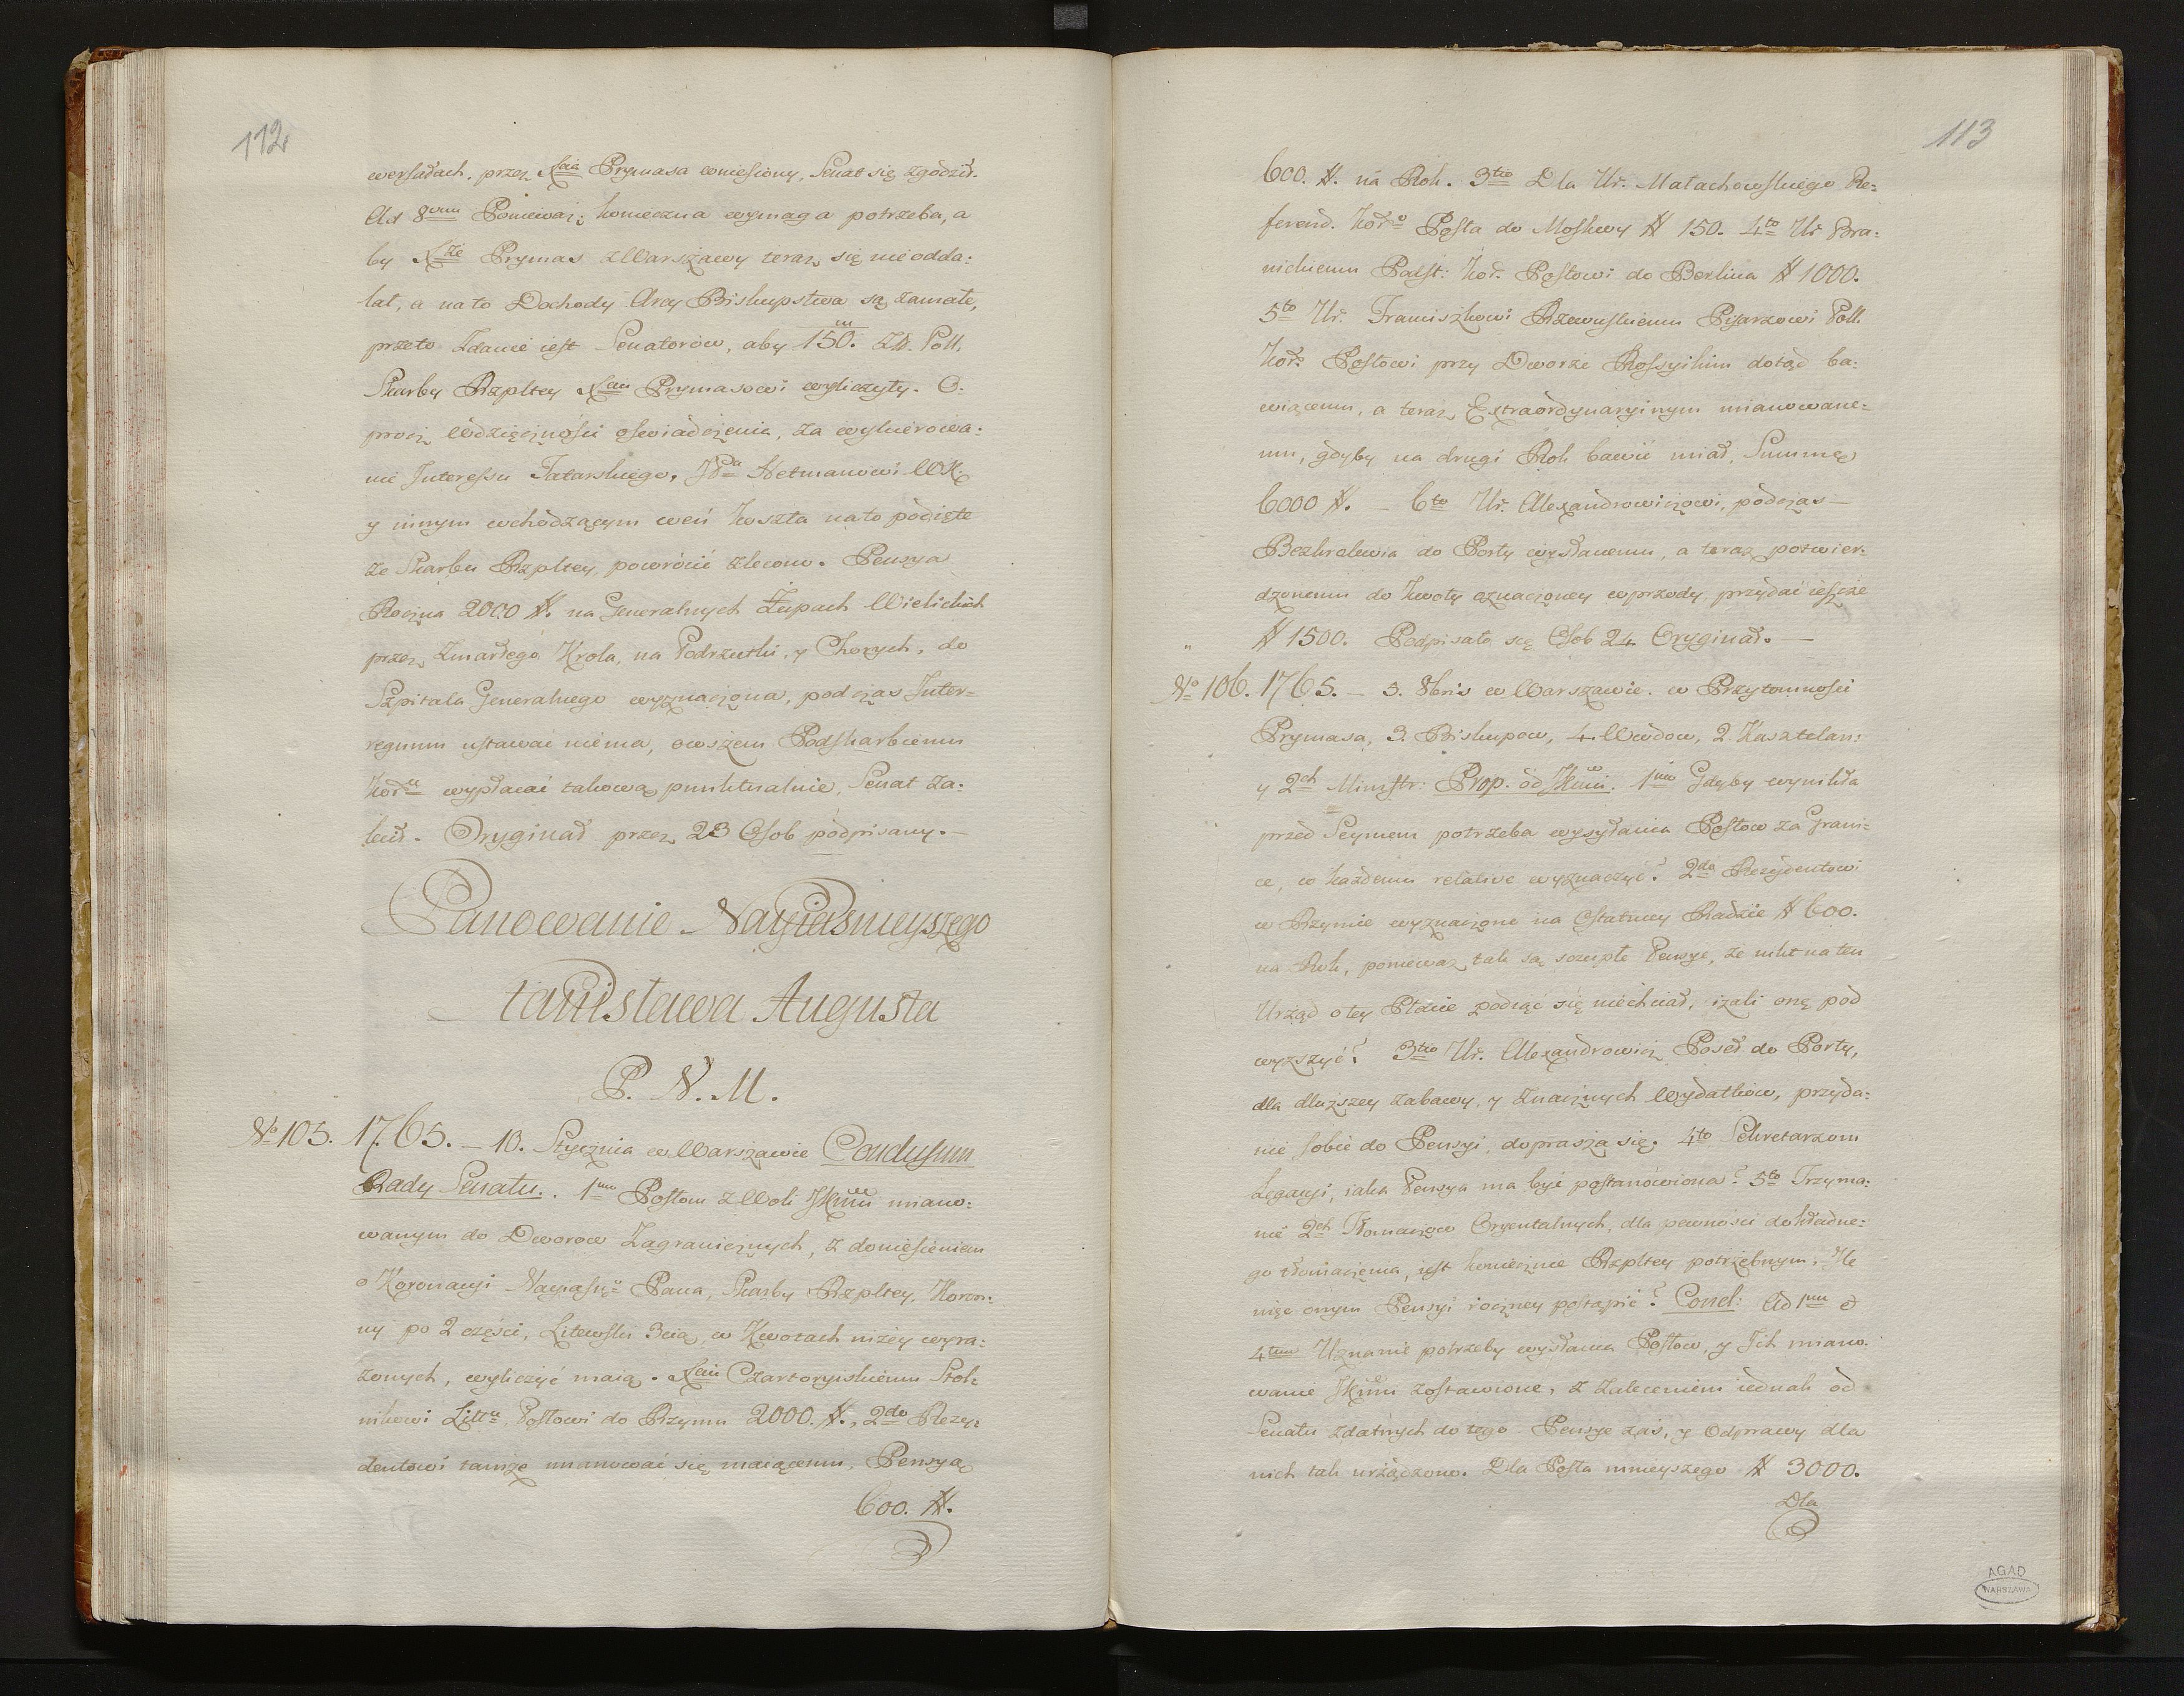 112
wersałach, przez Xcia Prymasa wniesiony, Senat się zgodził.
Ad 8vum Ponieważ konieczna wymaga potrzeba, a
by Xże Prymas z Warszawy teraz się nie odda-
lał, a na to Dochody Arcy Biskupstwa są zamałe,
przeto Zdanie iest Senatorow, aby 150.m Zł. Poll.
Skarby Rzpltey Xciu Prymasowi wyliczyły. O-
procz Wdzięczności oświadczenia, za wykierowa-
nie Interessu Tatarskiego, Hetmanowi WK.
y innym wchodzącym weń koszta na to podięte
ze Skarbu Rzpltey powrócić zlecono. Pensya
Roczna 2000 #. na Generalnych Żupach Wielickich
przez Zmarłego Krola, na Podrzutki, y Chorych, do
Szpitala Generalnego wyznaczona, podczas Inter-
regnum ustawać niema, owszem Podskarbiemu
Kor. wypłacać takową punktualnie, Senat za-
kuł. Oryginał przez 23 Osob podpisany.
Panowanie Nayiasnieyszego
Stanisława Augusta
P. N. M.
No 105. 1765. – 10. Stycznia w Warszawie Conclusum
Rady Senatu. 1mo Posłom z Woli JKMci miano-
wanym do Dworow Zagranicznych, z doniesieniem
o Koronacyi Nayiaśn. Pana, Skarby Rzpltey, Koron-
ny po 2 części, Litewski 3cią, w Kwotach niżey wyra-
żonych, wyliczyć maią. Xciu Czartoryiskiemu Stol-
nikowi Litt. Posłowi do Rzymu 2000. #., 2do Rezy-
dentowi tamże mianować się maiącemu, Pensyą
600. #.
113
600. #. na Rok. 3tio Dla Ur. Małachowskiego Re-
ferend. Kor. Posła do Moskwy # 150. 4to Ur. Bra-
nickiemu Podst: Kor. Posłowi do Berlina # 1000.
5to Ur. Franciszkowi Rzewuskiemu Pisarzowi Poll.
Kor. Posłowi przy Dworze Rossyiskim dotąd ba-
wiącemu, a teraz Extraordynaryinym mianowane-
mu, gdyby na drugi Rok bawić miał, Summę
6000 #. – 6to Ur. Alexandrowiczowi, podczas
Bezkrolewia do Porty wysłanemu, a teraz potwier-
dzonemu do kwoty oznaczoney wprzody, przydać ieszcze
# 1500. Podpisało się Osob 24. Oryginał. –
No 106. 1765. – 5. 8bris w Warszawie. w Przytomności
Prymasa, 3. Biskupow, 4. Wwdow, 2. Kasztelan:
y 2ch Ministr: Prop. od JKMci. 1mo Gdyby wynikła
przed Seymem potrzeba wysyłania Posłow za Grani-
ce, co każdemu relative wyznaczyć? 2do Rezydentowi
w Rzymie wyznaczone na Ostatniey Radzie # 600.
na Rok, ponieważ tak są szczupłe Pensye, że nikt na ten
Urząd o tey Płacie podiąć się niechciał, izali onę pod
wyższyć? 3tio Ur. Alexandrowicz Poseł do Porty,
dla dłuższey zabawy, y znacznych Wydatkow, przyda-
nie sobie do Pensyi, doprasza się. 4to Sekretarzom
Legacyi, iaka Pensya ma być postanowiona? 5to Trzyma-
nie 2ch Tłomaczow Oryentalnych, dla pewności dokładne-
go tłomaczenia, iest koniecznie Rzpltey potrzebnym. Ile
więc onym Pensyi roczney postąpić? Concl: Ad 1mum et
4tum Uznanie potrzeby wysłania Posłow, y Ich miano-
wanie JKMci zostawione, z zaleceniem iednak od
Senatu zdatnych do tego. Pensye zaś, y Odprawy dla
nich tak urządzono. Dla Posła mnieyszego # 3000.
Dla
AGAD
WARSZAWA